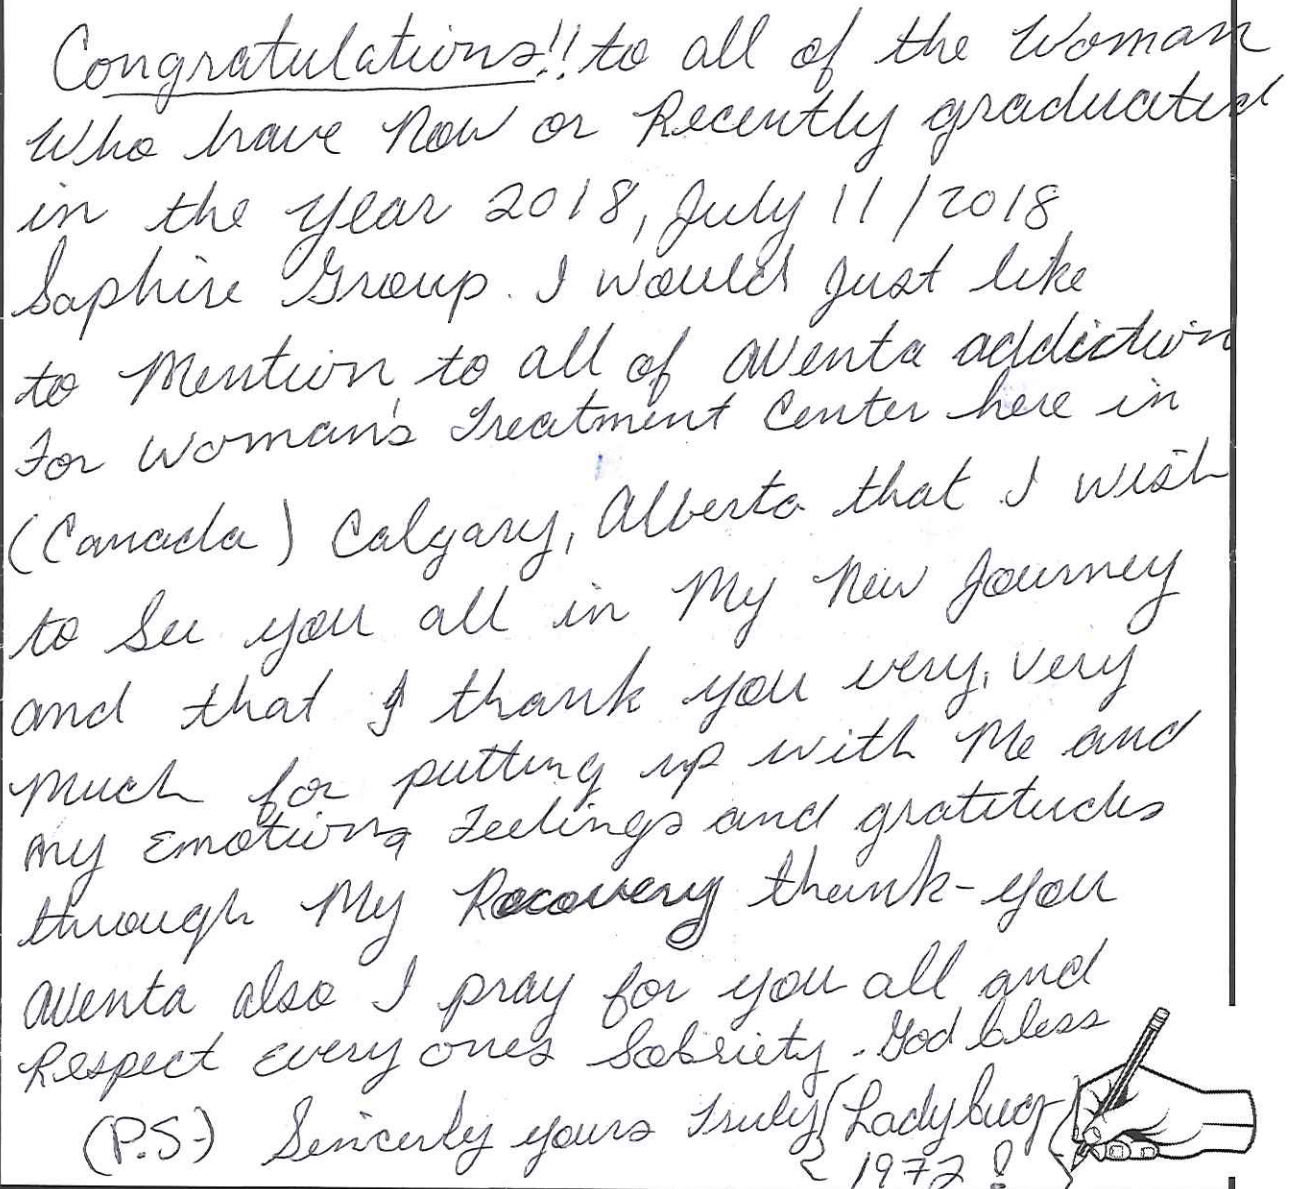 Congratulations!! to all of the Woman
Who have Now or Recently graduated
in the year 2018, July 11/2018
Saphire Group. I would Just like
to Mention to all of aventa addiction
For woman's Treatment Center here in
(Canada) Calgary, Alberta that I wish
to See you all in My New Journey
and that I thank you very, very
Much for putting up with Me and
My Emotions Feelings and gratitudes
through My Recovery thank-you
aventa also I pray for you all and
Respect Every ones Sobriety. God bless
(P.S.) Sincerly yours Truly {Ladybug}
{ 1972 !